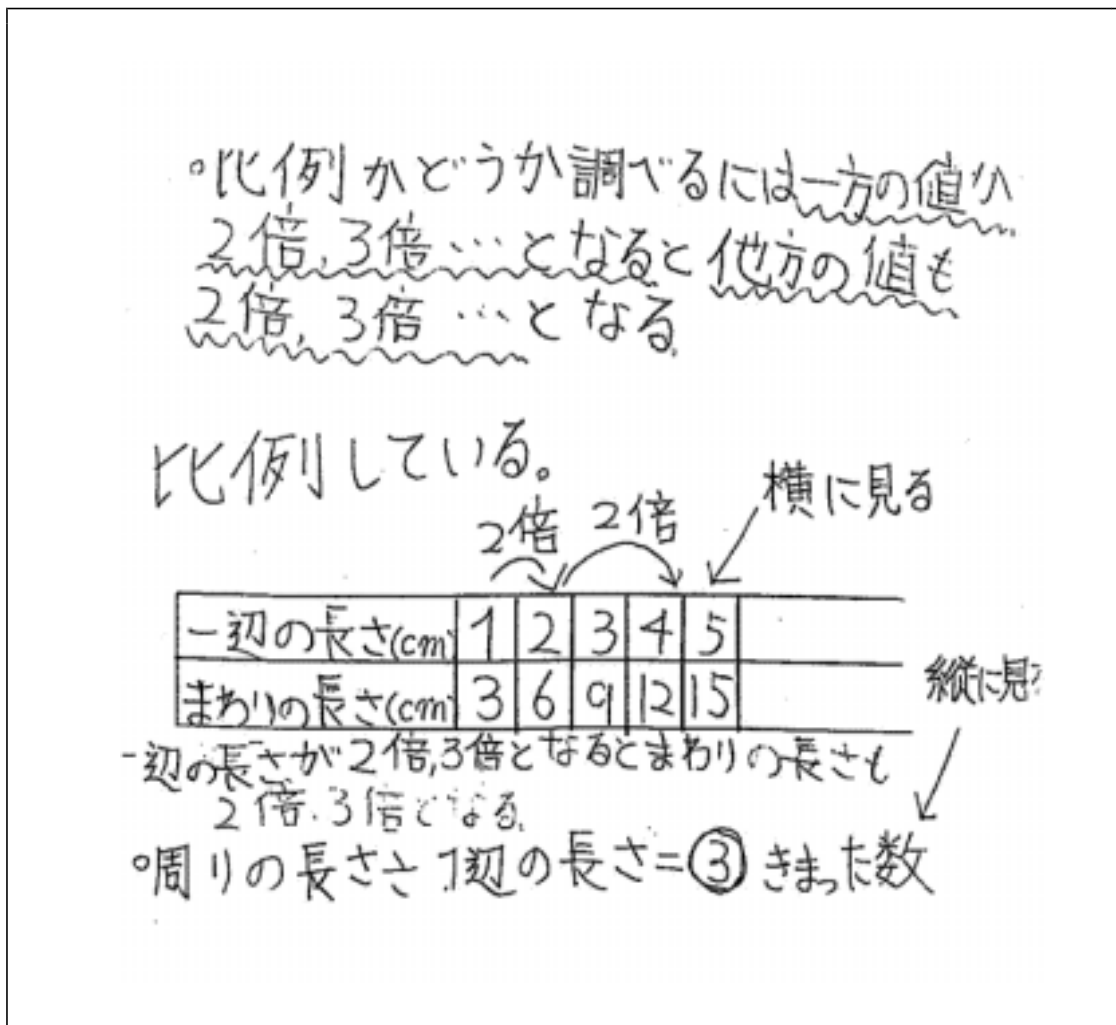 。比例かどうか調べるには一方の値が
2倍,3倍…となると他方の値も
2倍,3倍…となる。
比例している。
2倍 2倍 横に見る
一辺の長さ(cm) 1 2 3 4 5
まわりの長さ(cm) 3 6 9 12 15
縦に見る
一辺の長さが2倍,3倍となるとまわりの長さも
2倍、3倍となる。
。周りの長さ 1辺の長さ=③きまった数